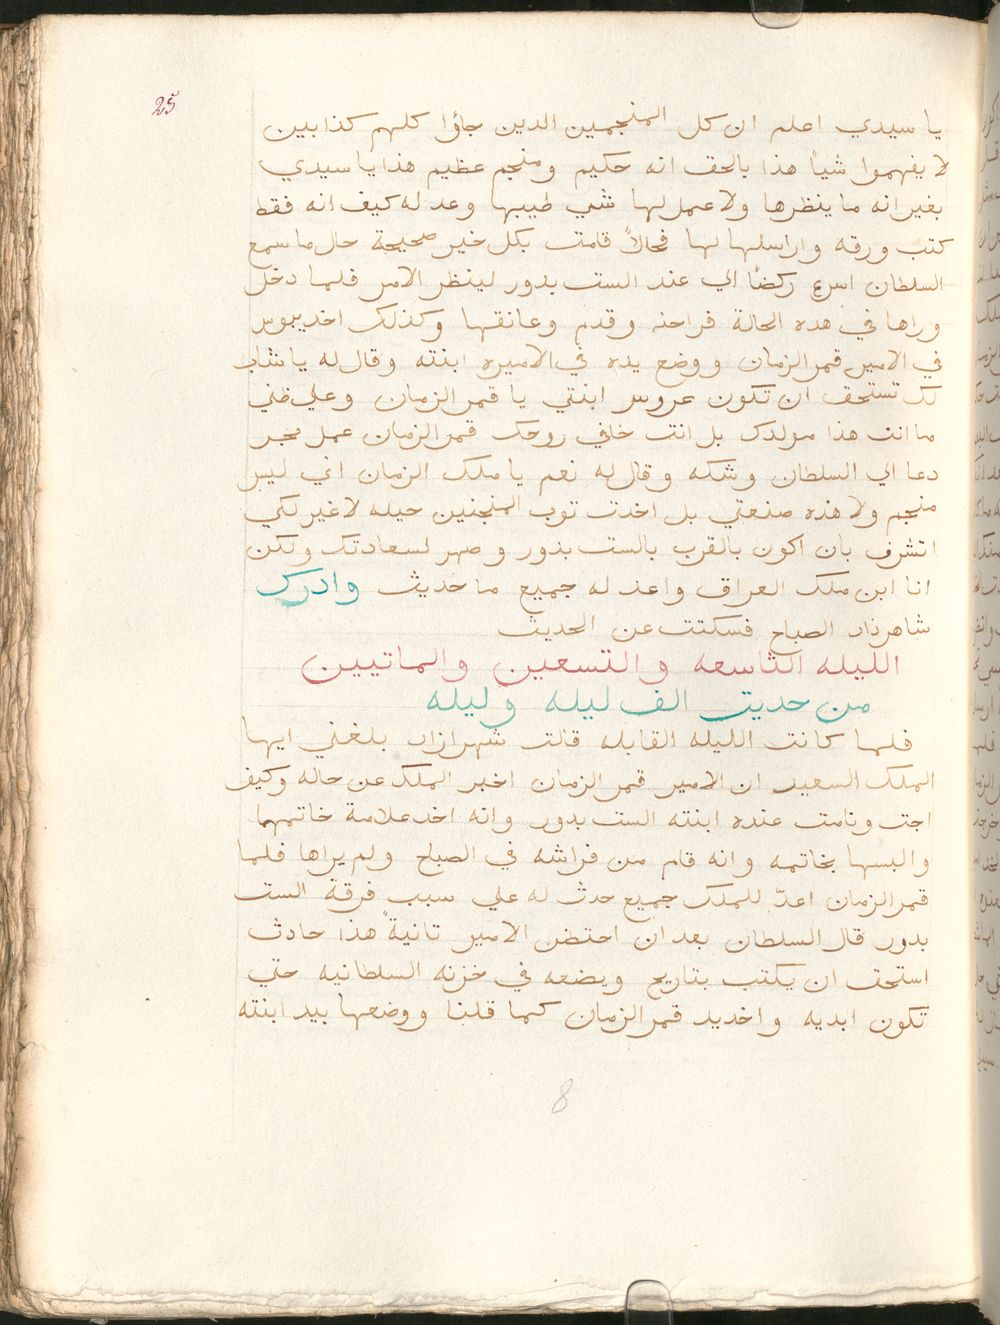 25
يا سيدي اعلم ان كل المنجمين الدين جاؤا كلهم كذابين
لا يفهموا شياً هذا بالحق انه حكيم ومنجم عظيم هذا يا سيدي
بغير انه ما ينظرها ولا عمل لها شي طيبها وعد له كيف انه فقط
كتب ورقه واراسلها لها فحلاً قامت بكل خير صحيحة حال ما سمع
السلطان اسرع ركضاً الي عند الست بدور لينظر الامر فلما دخل
وراها في هده الحالة فراحنه وقدم وعانقها وكذلك اخد يبوس
في الامير قمر الزمان ووضع يده في الاميره ابنته وقال له يا شاب
لك تستحق ان تكون عروس ابنتي يا قمر الزمان وعلي ظني
ما انت هذا مولدك بل انت خافي روحك قمر الزمان عمل مجر
دعا الي السلطان وشكه وقال له نعم يا ملك الزمان اني ليس
منجم ولا هذه صنعتي بل اخدت توب المنجنين حيله لا غير لكي
اتشرف بان اكون بالقرب بالست بدور وصهر لسعادتك ولكن
انا ابن ملك العراق واعد له جميع ما حديث وادرك
شاهرزاد الصباح فسكتت عن الحديث
الليله التاسعه والتسعين والماتيين
من حديت الف ليله وليله
فلما كانت الليله القابله قالت شهرازاد بلغني ايها
الملك السعيد ان الامير قمر الزمان اخبر الملك عن حاله وكيف
اجت ونامت عنده ابنته الست بدور وانه اخد علامة خاتمهما
والبسها بخاتمه وانه قام من فراشه في الصباح ولم يراها فلما
قمر الزمان اعدّ للملك جميع حدث له علي سبب فرقة الست
بدور قال السلطان بعد ان احتظن الامير تانيةً هذا حادث
استحق ان يكتب بتاريح ويضعه في خزنه السلطانيه حتي
تكون ابديه واخد يد قمر الزمان كما قلنا ووضعها بيد ابنته
8